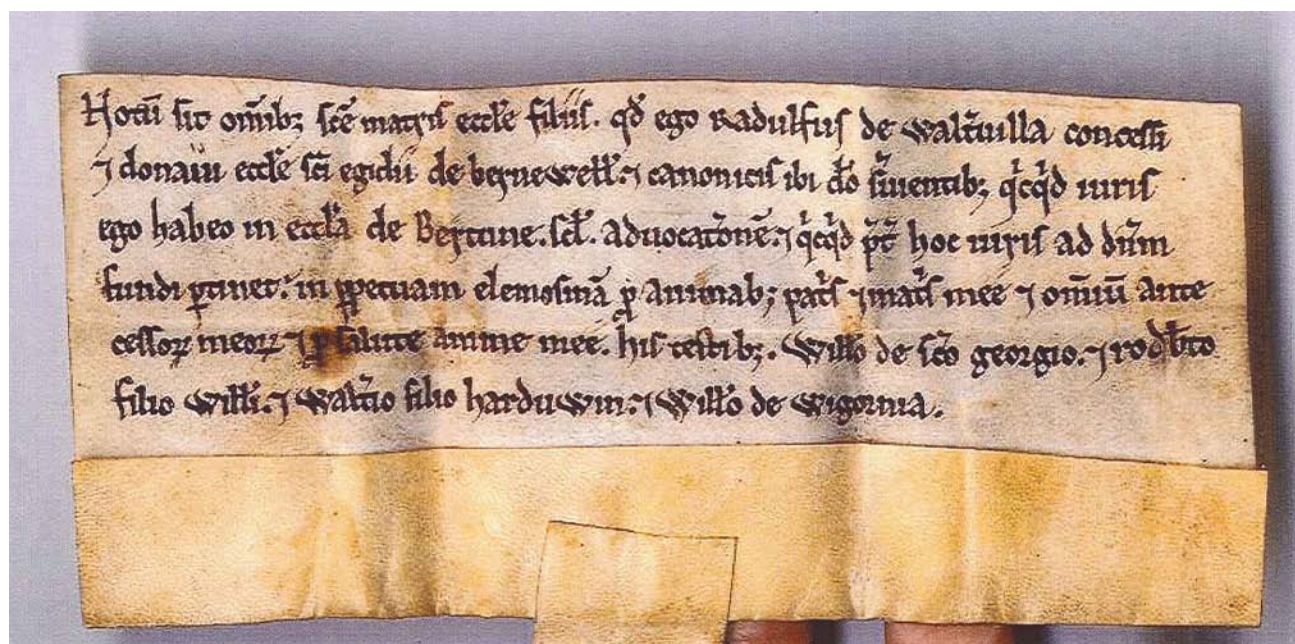 Notū sit om̄ibꝫ sc̄e matris eccl̄e filiis. qd̄ ego Radulfus de Walt̄uilla concessi
⁊ donaui eccl̄e sc̄i egidii de bernewell̄.⁊ canonicis ibi dō s̄uientibꝫ qͥcqͥd iuris
ego habeo in eccl̄a de Bertune. scl̄. aduocatōnē.⁊ qͥcqͥd p̄t̄ hoc iuris ad dn̄m
fundi ꝑtinet.ʼ in ꝑpetuam elemosinā ꝓ animabꝫ pat̄s ⁊ mat̄s mee ⁊ om̄iū ante
cessoꝝ meoꝝ ⁊ ꝓ salute anime mee. his testibꝫ. Will̄o de sc̄o georgio.⁊ rodb̄to
filio will̄i.⁊ Walt̄io filio harduwin.⁊ Will̄o de wigornia.